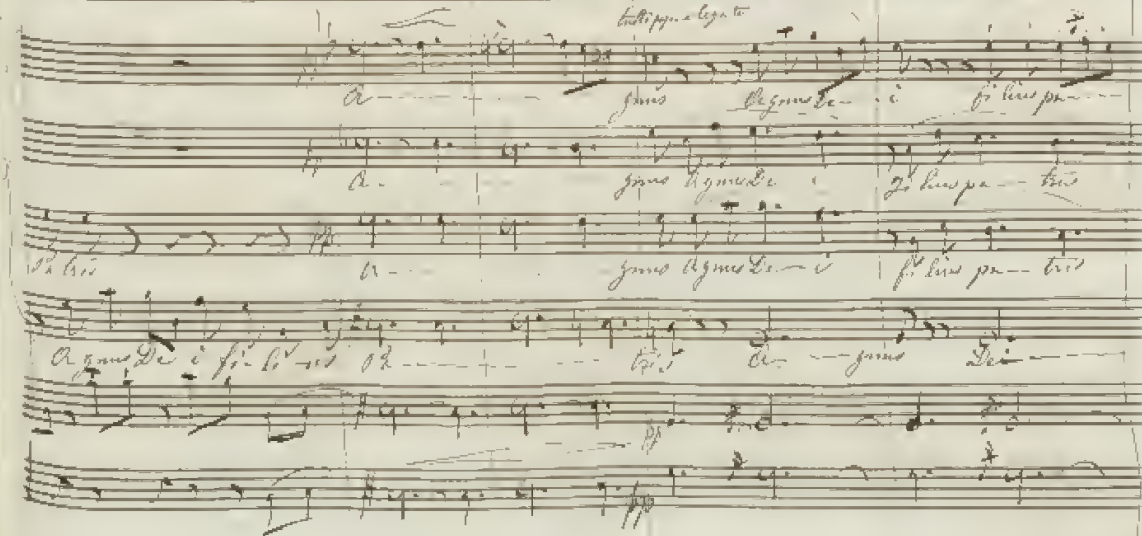 tutti pp e legato
A - - - - gnus Agnus De - i filius pa - - -
pp
A - - - - gnus Agnus De i filius pa - - tris
Patris pp A - - - gnus Agnus De - - i filius pa - - tris
Agnus De i fi - li - us Pa - - - - tris A - - gnus Dei - - -
pp
pp